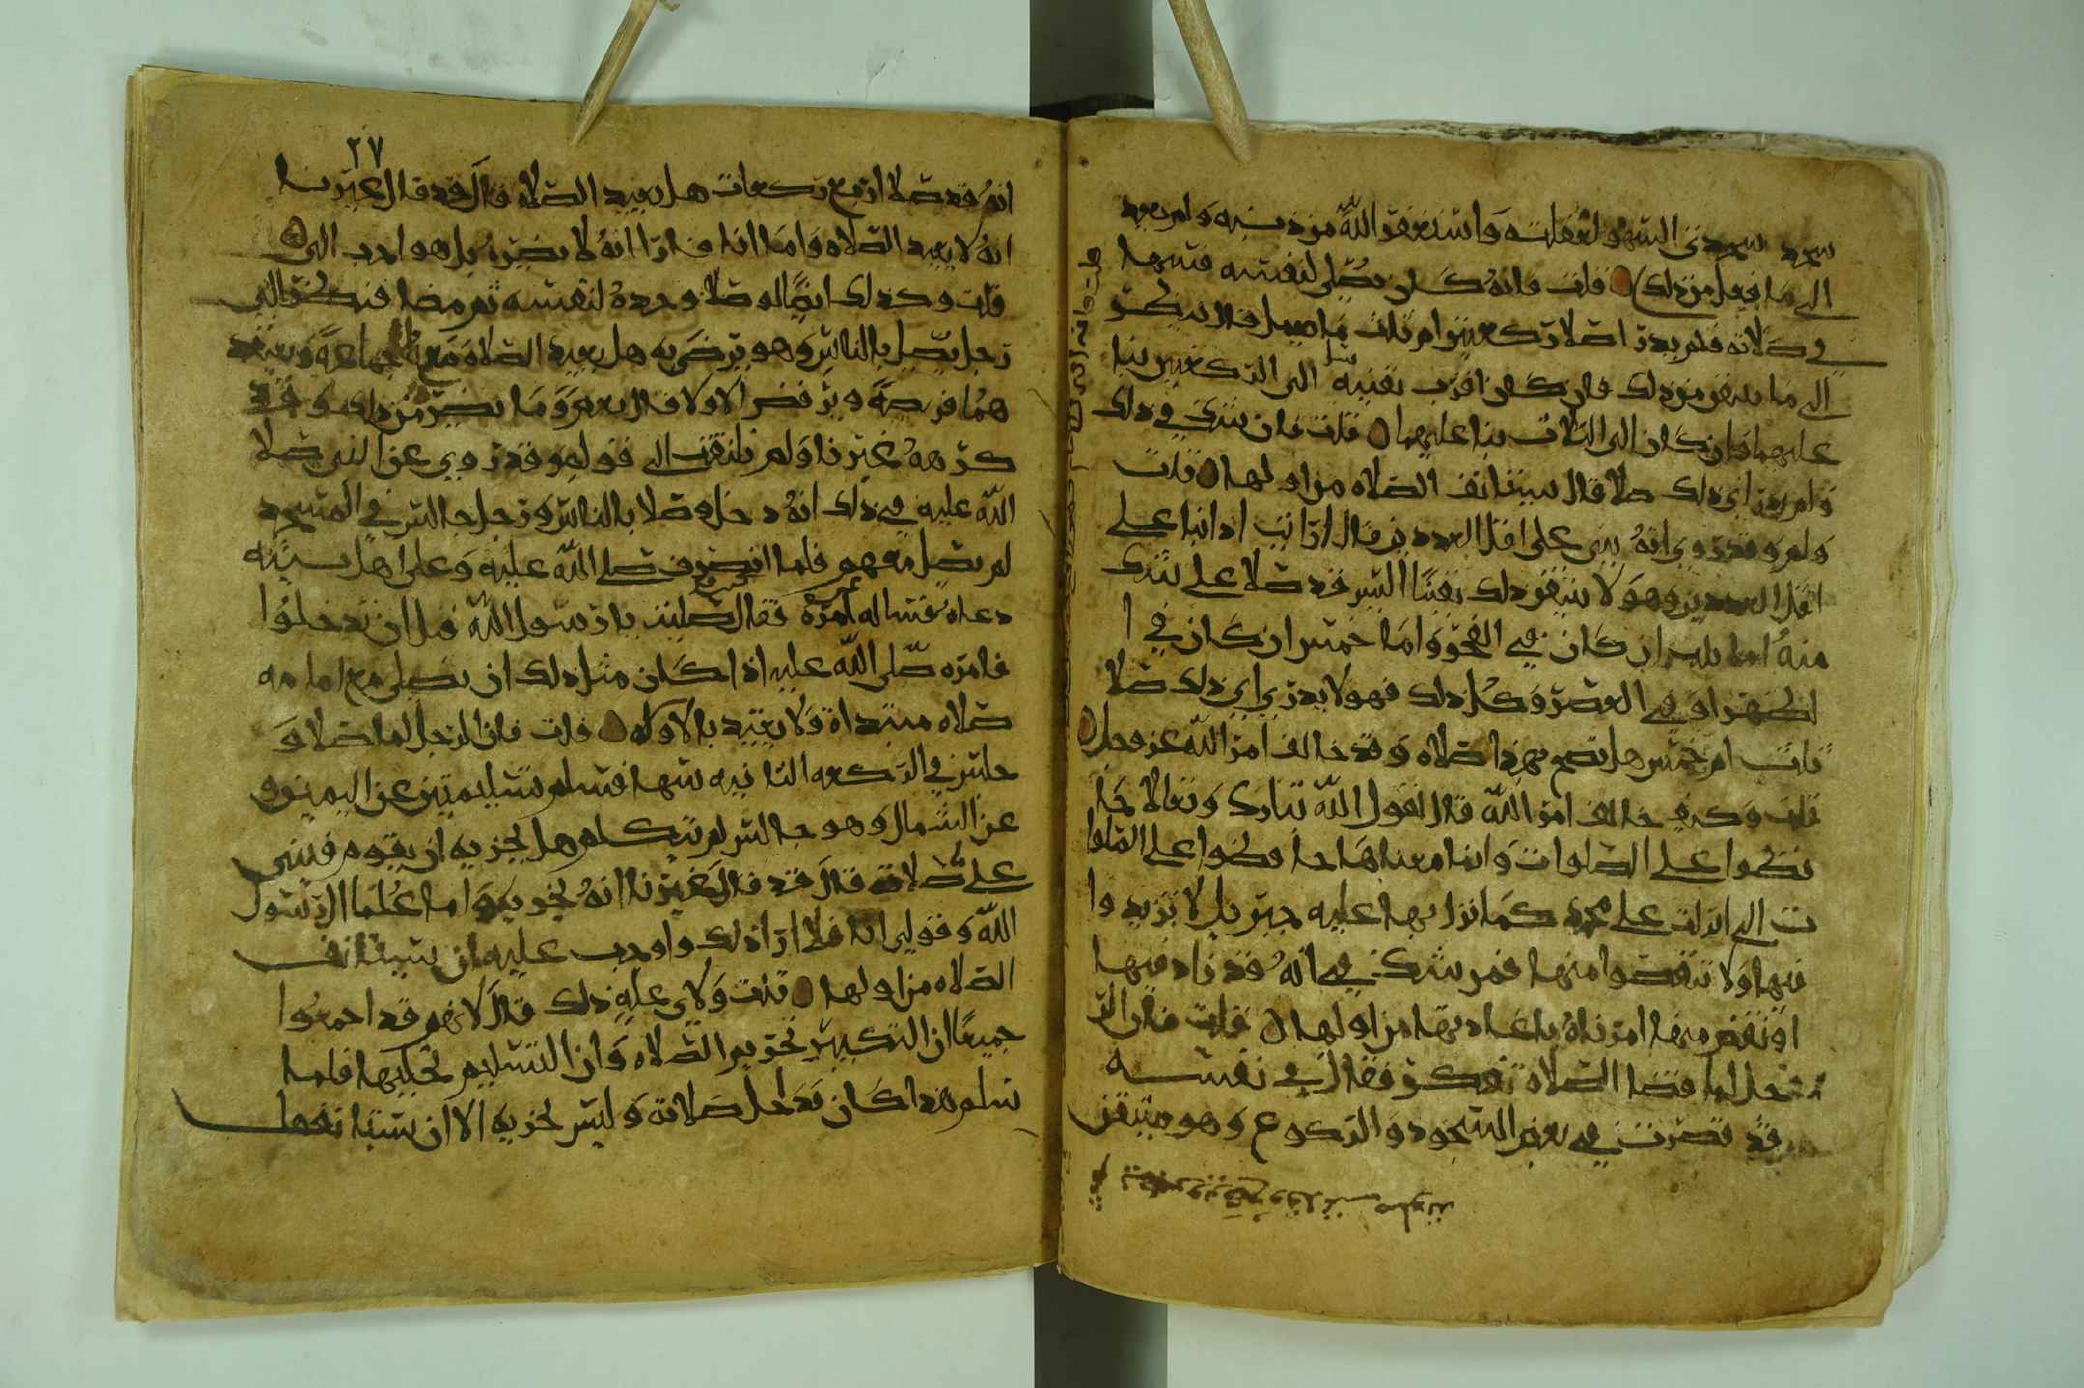 سجد سجدتي السهو لغفلته واستغفر الله من ذنبه ولم يعد
الى ما فعل من ذلك قلت فانه كان يصلي لنفسه فسها
في صلاته فلم يدر اصلا ركعتين ام ثلث ما يعمل قال ينظر
الى ما يتيقن من ذلك فان كان اقرب يقينه الى الركعتين بنا
عليهما وان كان الى الثلاث بنا عليها قلت فان شك في ذلك
ولم يدر اي ذلك صلا قال يستانف الصلاه من اولها قلت
ولم وقد روي انه يبني على اقل العددين قال ارايت اذا بنا على
اقل العددين وهو لا يتيقن ذلك يقينا اليس قد صلا على شك
منه ان كان في الفجر واما خمس ان كان في ا
لظهر او في العصر وكل ذلك فهو لا يدري اي ذلك صلا
ثلث ام خمس هل تصح بهذا صلاه وقد خالف امر الله عز وجل
قلت وكيف خالف امر الله قال لقول الله تبارك وتعالا حا
فظوا على الصلوات وانما معناها حافظوا على الصلوا
ت التي انزلت على محمد كما نزل بها عليه جبريل لا تزيدوا
فيها ولا تنقصوا منها فمن شك في انه قد زاد فيها
او نقص منها امرناه باعادتها من اولها قلت فان الر
جل لما قضا الصلاه تفكر فقال في نفسه
قد قصرت في بعض السجود والركوع وهو متيقن
٢٧
انه قد صلا اربع ركعات هل يعيد الصلاه قال قد قال غيرنا
انه لا يعيد الصلاه واما انا فارا انه لا يضره بل هو احب الي
قلت وكذلك ايضا لو صلا وحده لنفسه ثم مضا فنظر الى
رجل يصلي بالناس وهو يرضى به هل يعيد الصلاه معه جماعه ويعتقد
هما فريضه ويرفض الاولا قال نعم وما يضره من ذلك وقد
كره غيرنا ولم نلتفت الى قولهم وقد روي عن النبي صلا
الله عليه في ذلك انه دخل وصلا بالناس ورجل جالس في المسجد
لم يصل معهم فلما انصرف صلى الله عليه وعلى اهل بيته
دعاه فساله عن امره فقال صليت يا رسول الله قبل ان تدخلوا
فامره صلى الله عليه اذا كان مثل ذلك ان يصلي مع امامه
صلاه مبتداة ولا يعتد بالاوله قلت فان الرجل لما صلا و
جلس في الركعه الثانيه سها فسلم تسليمتين عن اليمين و
عن الشمال وهو جالس لم يتكلم هل يجزيه ان يقوم فيبني
على صلاته قال قد قال غيرنا انه يجزيه واما علما ال رسول
الله وقولي انا فلا ارا ذلك واوجب عليه ان يستانف
الصلاه من اولها قلت ولاي عله ذلك قال لانهم قد اجمعوا
جميعا ان التكبير تحريم الصلاه وان التسليم تحليلها فلما
سلم هذا كان قد احل صلاته وليس يجزيه الا ان يستانف